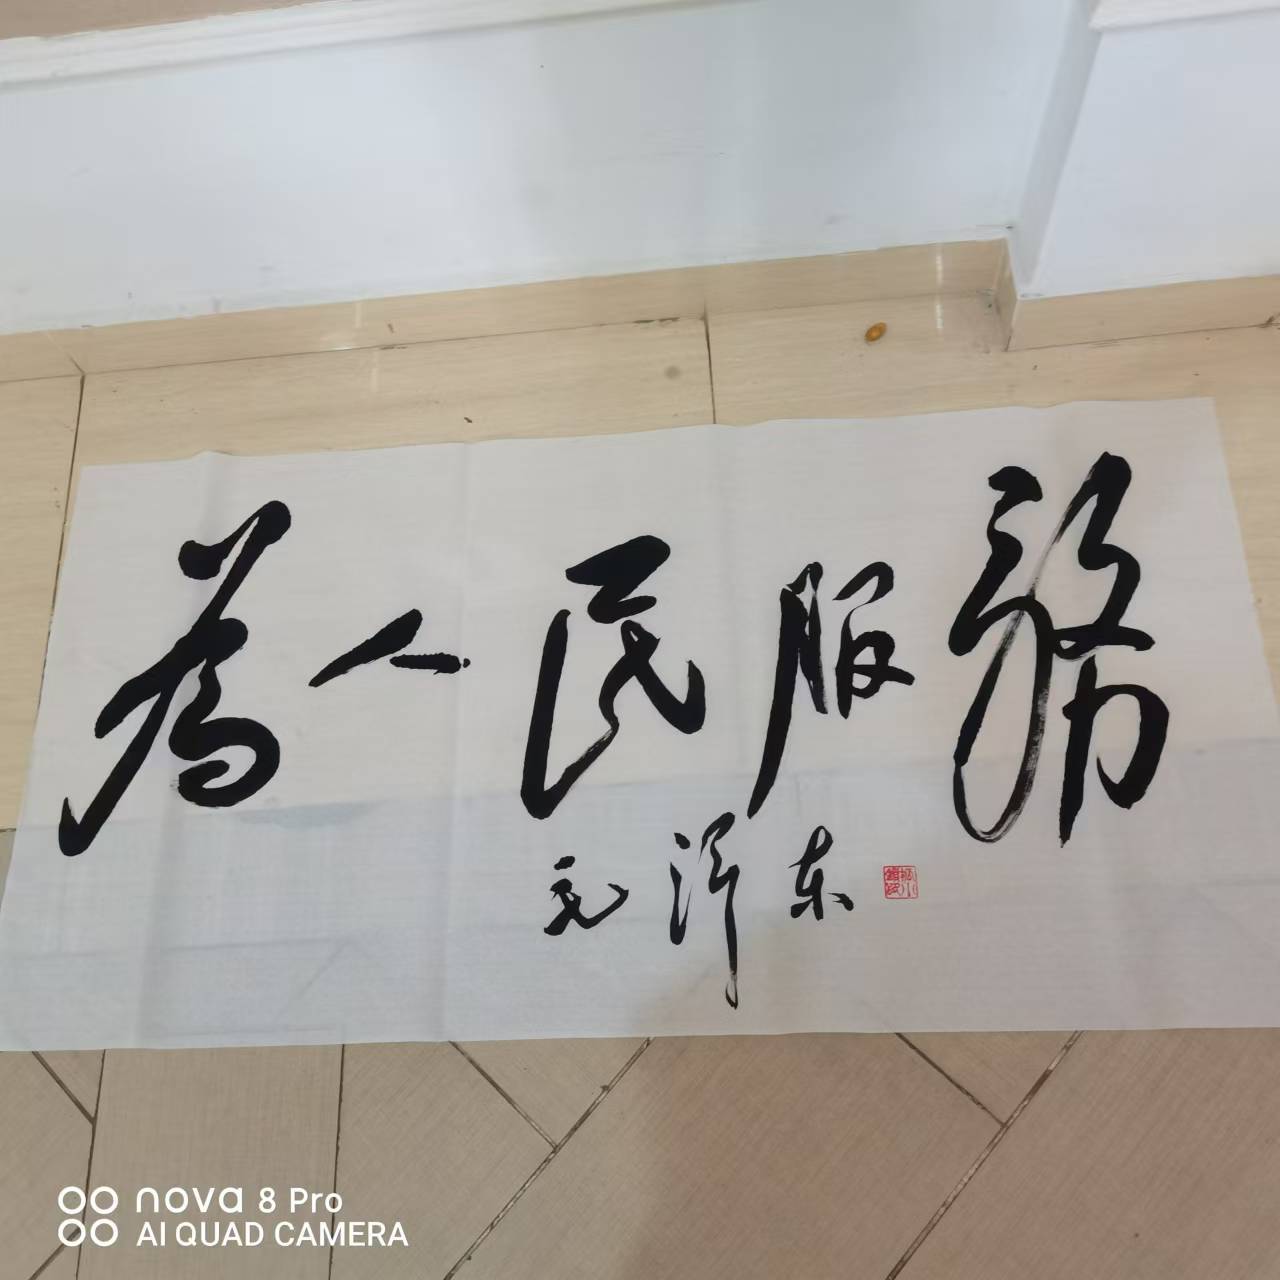 为人民服務
毛泽东
nova 8 Pro
AI QUAD CAMERA